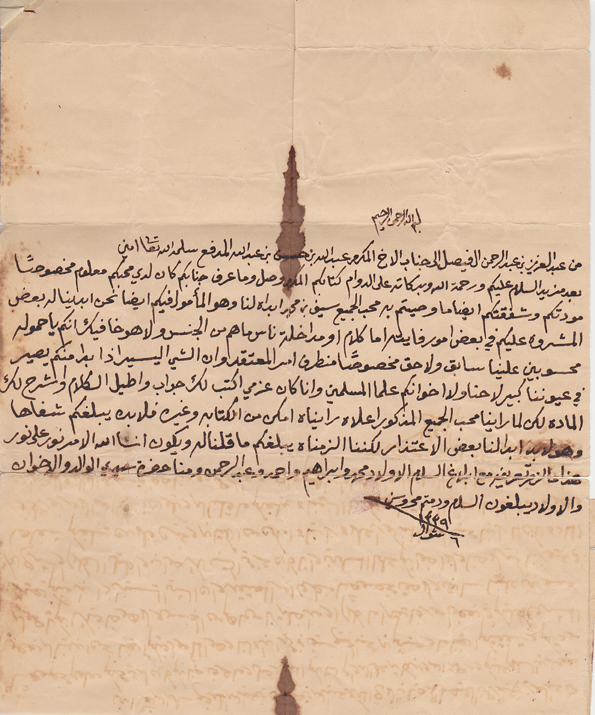 بسم الله الرحمن الرحيم
من عبد العزيز بن عبد الرحمن الفيصل الى جناب الاخ المكرم عبد الله بن حسن بن عبد الله المدفع سلمه الله تعالى امين
بعد مزيد السلام عليكم ورحمة الله وبركاته على الدوام كتابكم المكرم وصل وما عرف جنابكم كان لدى محبكم معلوم مخصوصًا
مودتكم وشفقتكم ايضا ما وصيتم به محب الجميع سيف بن محمد ابداه لنا وهو المأمول فيكم ايضا نحن ابدينا له بعض
المشروه عليكم في بعض امور فايته اما كلام او مداخلة ناس ما هم من الجنس ولا هو خافيك انكم يا حموله
محسوبين علينا سابق ولاحق مخصوصًا من طرف امر المعتقد وان الشي اليسير اذا بدا منكم يصير
في عيوننا كبير لاحنا ولا اخوانكم علما المسلمين وانا كان عزمي اكتب لك جواب واطيل الكلام واشرح لك
الماده لكن لما راينا محب الجميع المذكور اعلاه رايناه امكن من الكتابه وغيره فلابده يبلغكم شفاها
وهو ابدا لنا بعض الاعتذار لكننا الزمناه يبلغكم ما قلنا له ويكون انشاالله الامر نور على نور
هذا ما لزم تعريفه مع ابلاغ السلام الاولاد محمد وابراهيم واحمد وعبد الرحمن ومنا حضرة سيدي الوالد والاخوان
والاولاد يبلغون السلام ودمتم محروسين
١٣٣٩
٦ شوال